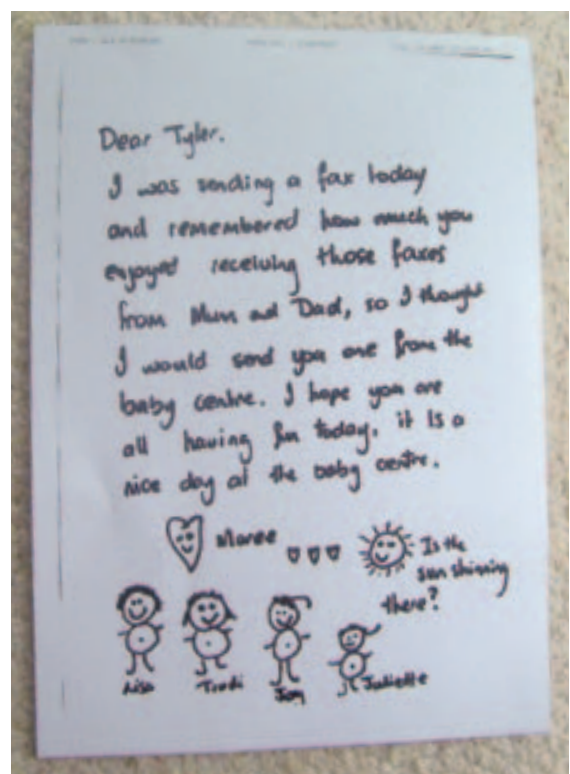 Dear Tyler.
I was sending a fax today
and remembered how much you
enjoyed receiving those faxes
from Mum and Dad, so I thought
I would send you one from the
baby centre. I hope you are
all having fun today. it Is a
nice day at the baby centre.
Maree
Is the
sun shinning
there?
Lisa Trudi Juliette